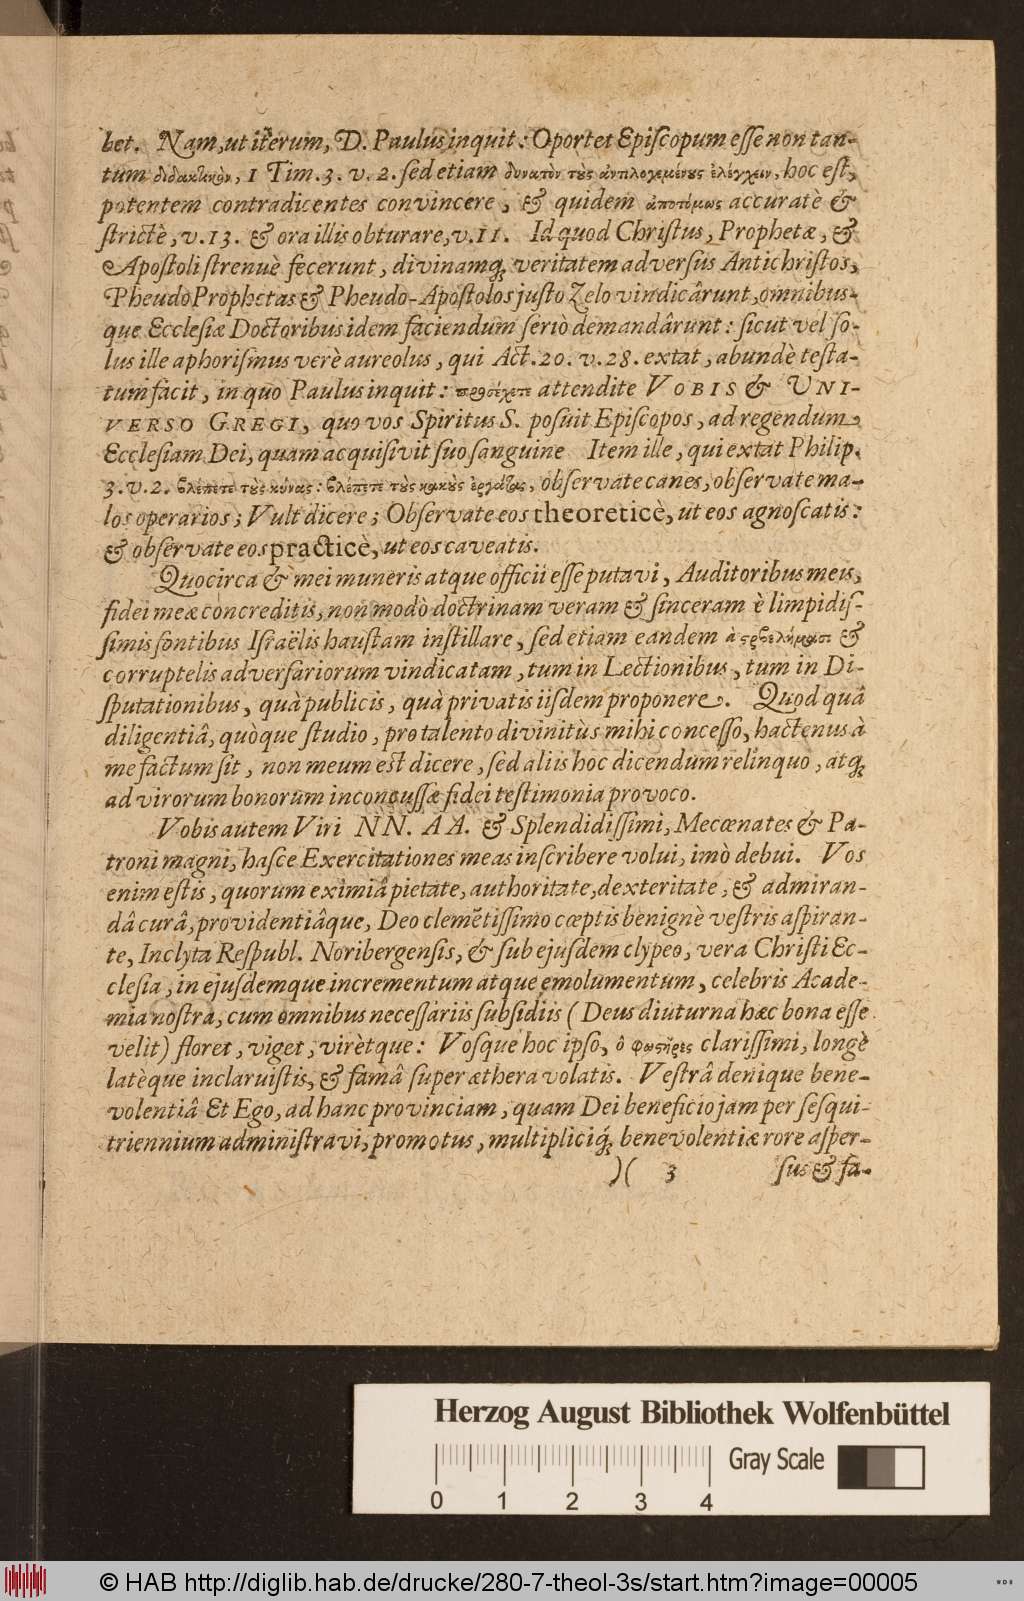 bet. Nam, ut iterum, D. Paulus inquit: Oportet Episcopum esse non tan-
tum διδακτικὸν, 1 Tim. 3. v. 2. sed etiam δυνατὸν τὸυς ἀντιλογεμένους ἐλέγχειν, hoc est,
potentem contradicentes convincere, & quidem ἀποτόμως accuratè &
strictè, v. 13. & ora illis obturare, v. 11. Id quod Christus, Prophetæ, &
Apostoli strenuè fecerunt, divinamq; veritatem adversùs Antichristos,
Pheudo Prophetas & Pheudo-Apostolos justo Zelo vindicârunt, omnibus-
que Ecclesiæ Doctoribus idem faciendum seriò demandârunt: sicut vel so-
lus ille aphorismus verè aureolus, qui Act. 20. v. 28. extat, abundè testa-
tum facit, in quo Paulus inquit: προσέχετε attendite VOBIS & UNI-
VERSO GREGI, quo vos Spiritus S. posuit Episcopos, ad regendum
Ecclesiam Dei, quam acquisivit suo sanguine Item ille, qui extat Philip.
3. v. 2. βλέπετε τὸυς κύνας: βλέπετε τὸυς κακὸυς ἐργάτας, observate canes, observate ma-
los operarios; Vult dicere; Observate eos theoreticè, ut eos agnoscatis:
& observate eos practicè, ut eos caveatis.
Quocirca & mei muneris atque officii esse putavi, Auditoribus meis,
fidei meæ concreditis, non modò doctrinam veram & sinceram è limpidis-
simis fontibus Israëlis haustam instillare, sed etiam eandem à &
corruptelis adversariorum vindicatam, tum in Lectionibus, tum in Di-
sputationibus, quà publicis, quà privatis iisdem proponere. Quod quâ
diligentiâ, quòque studio, pro talento divinitùs mihi concesso, hactenus à
me factum sit, non meum est dicere, sed aliis hoc dicendum relinquo, atq;
ad virorum bonorum inconcussæ fidei testimonia provoco.
Vobis autem Viri NN. AA. & Splendidissimi, Mecœnates & Pa-
troni magni, hasce Exercitationes meas inscribere volui, imò debui. Vos
enim estis, quorum eximiâ pietate, authoritate, dexteritate, & admiran-
dâ curâ, providentiâque, Deo clemẽtissimo cœptis benignè vestris aspiran-
te, Inclyta Respubl. Noribergensis, & sub ejusdem clypeo, vera Christi Ec-
clesia, in ejusdemque incrementum atque emolumentum, celebris Acade-
mia nostra, cum omnibus necessariis subsidiis (Deus diuturna hæc bona esse
velit) floret, viget, virètque: Vosque hoc ipso, ὁ φωστῆρες clarissimi, longè
latèque inclaruistis, & famâ super æthera volatis. Vestrâ denique bene-
volentiâ Et Ego, ad hanc provinciam, quam Dei beneficio jam per sesqui-
triennium administravi, promotus, multipliciq; benevolentiæ rore asper-
)( 3 sus & fa-
Herzog August Bibliothek Wolfenbüttel
Gray Scale
0 1 2 3 4
© HAB http://diglib.hab.de/drucke/280-7-theol-3s/start.htm?image=00005